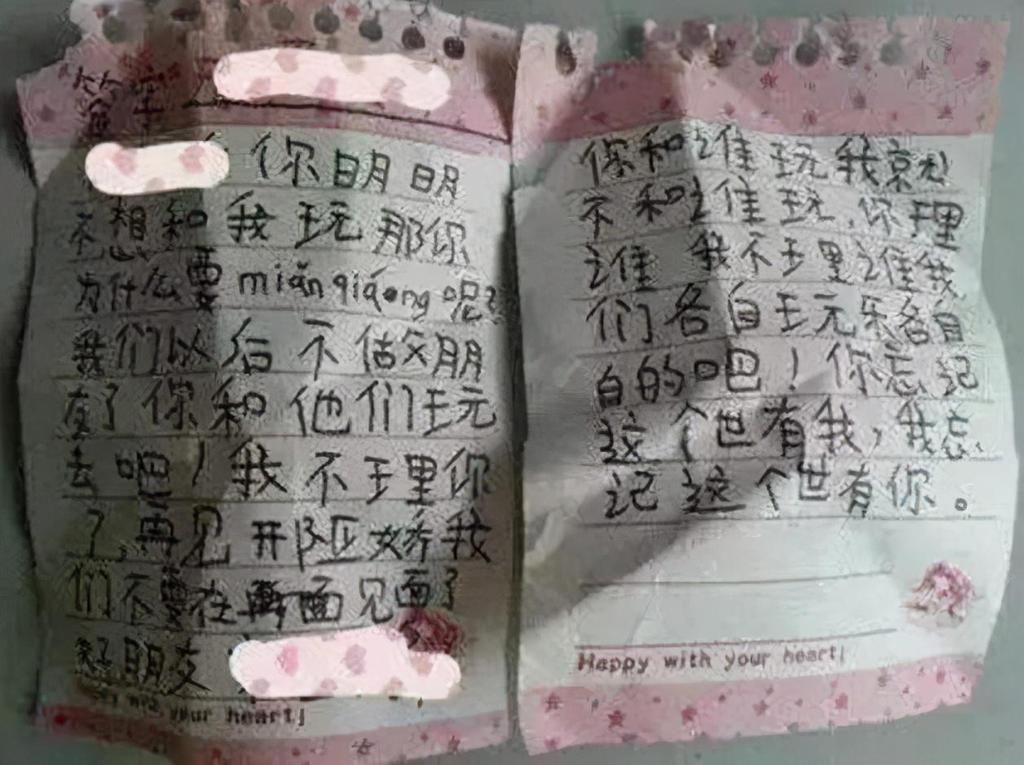 给
你明明
不想和我玩那你
为什么要miǎnqiáng呢？
我们以后不做交朋
友了你和他们玩
去吧！我不理你
了，再见
我
们不要在再面见面了
好朋友：
your heart!
你和谁玩我就
不和谁玩，你理
谁我不理谁我
们各自玩乐各自
的吧！你忘记
这个世有我，我忘
记这个世有你。
Happy with your heart!